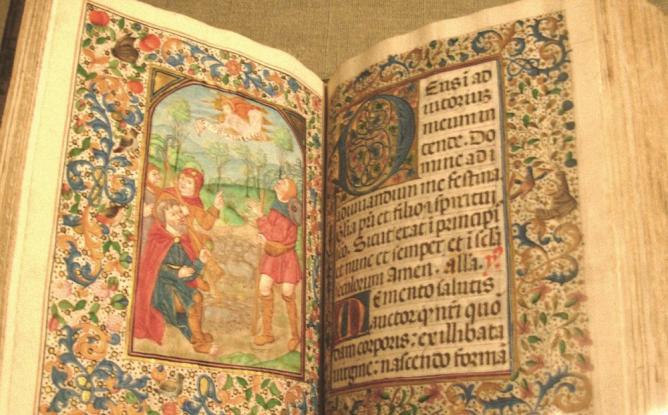 Deus i ad
iutorium
meum in
tende. Do
mine ad i
adiuuandum me festina
Glia pri et filio et spiritui
sco. Sicut erat i principi
et nunc et semper et i secla
seculorum Amen. Alla.
Memento salutis
auctor qz nri quo
dam corporis: ex illibata
uirgine: nascendo formā